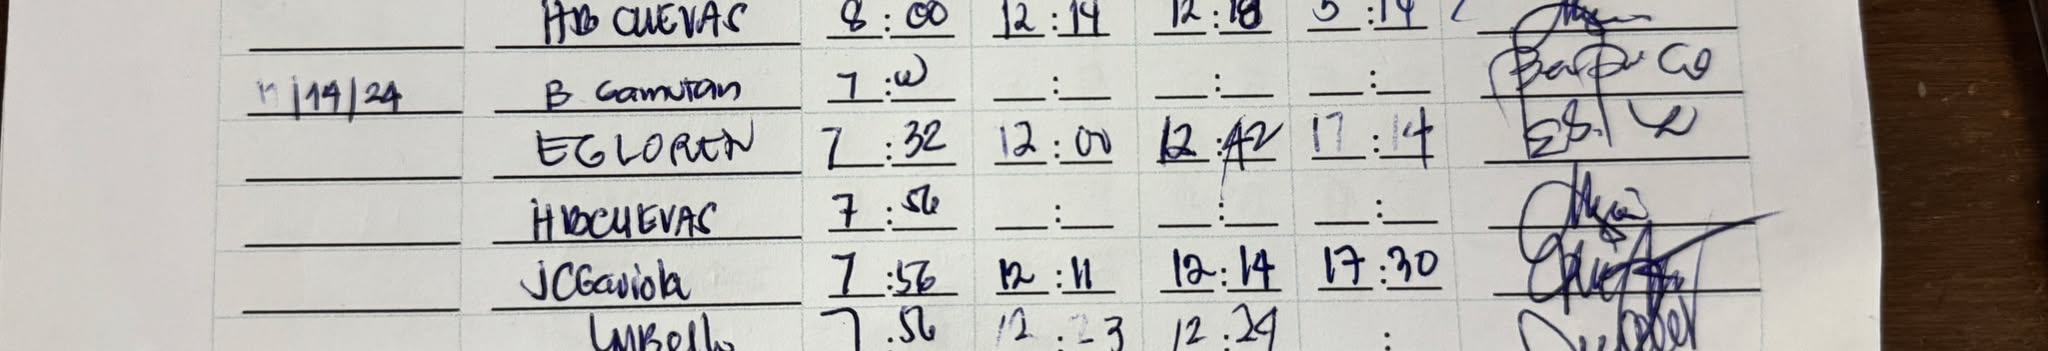 HB CUEVAS 8:00 12:14 12:18 5:14
11/14/24 B Gamutan 7:00 : : :
EGLOREN 7:32 12:00 12:42 17:14
HBCUEVAS 7:56 : : :
JCGaviola 7:56 12:11 12:14 17:30
7:56 12:23 12:29 :